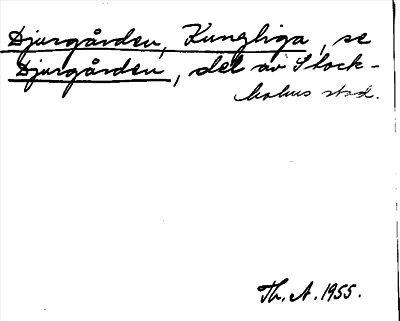 Djurgården, Kungliga, se
Djurgården, del av Stock-
holms stad.
Th. A. 1955.